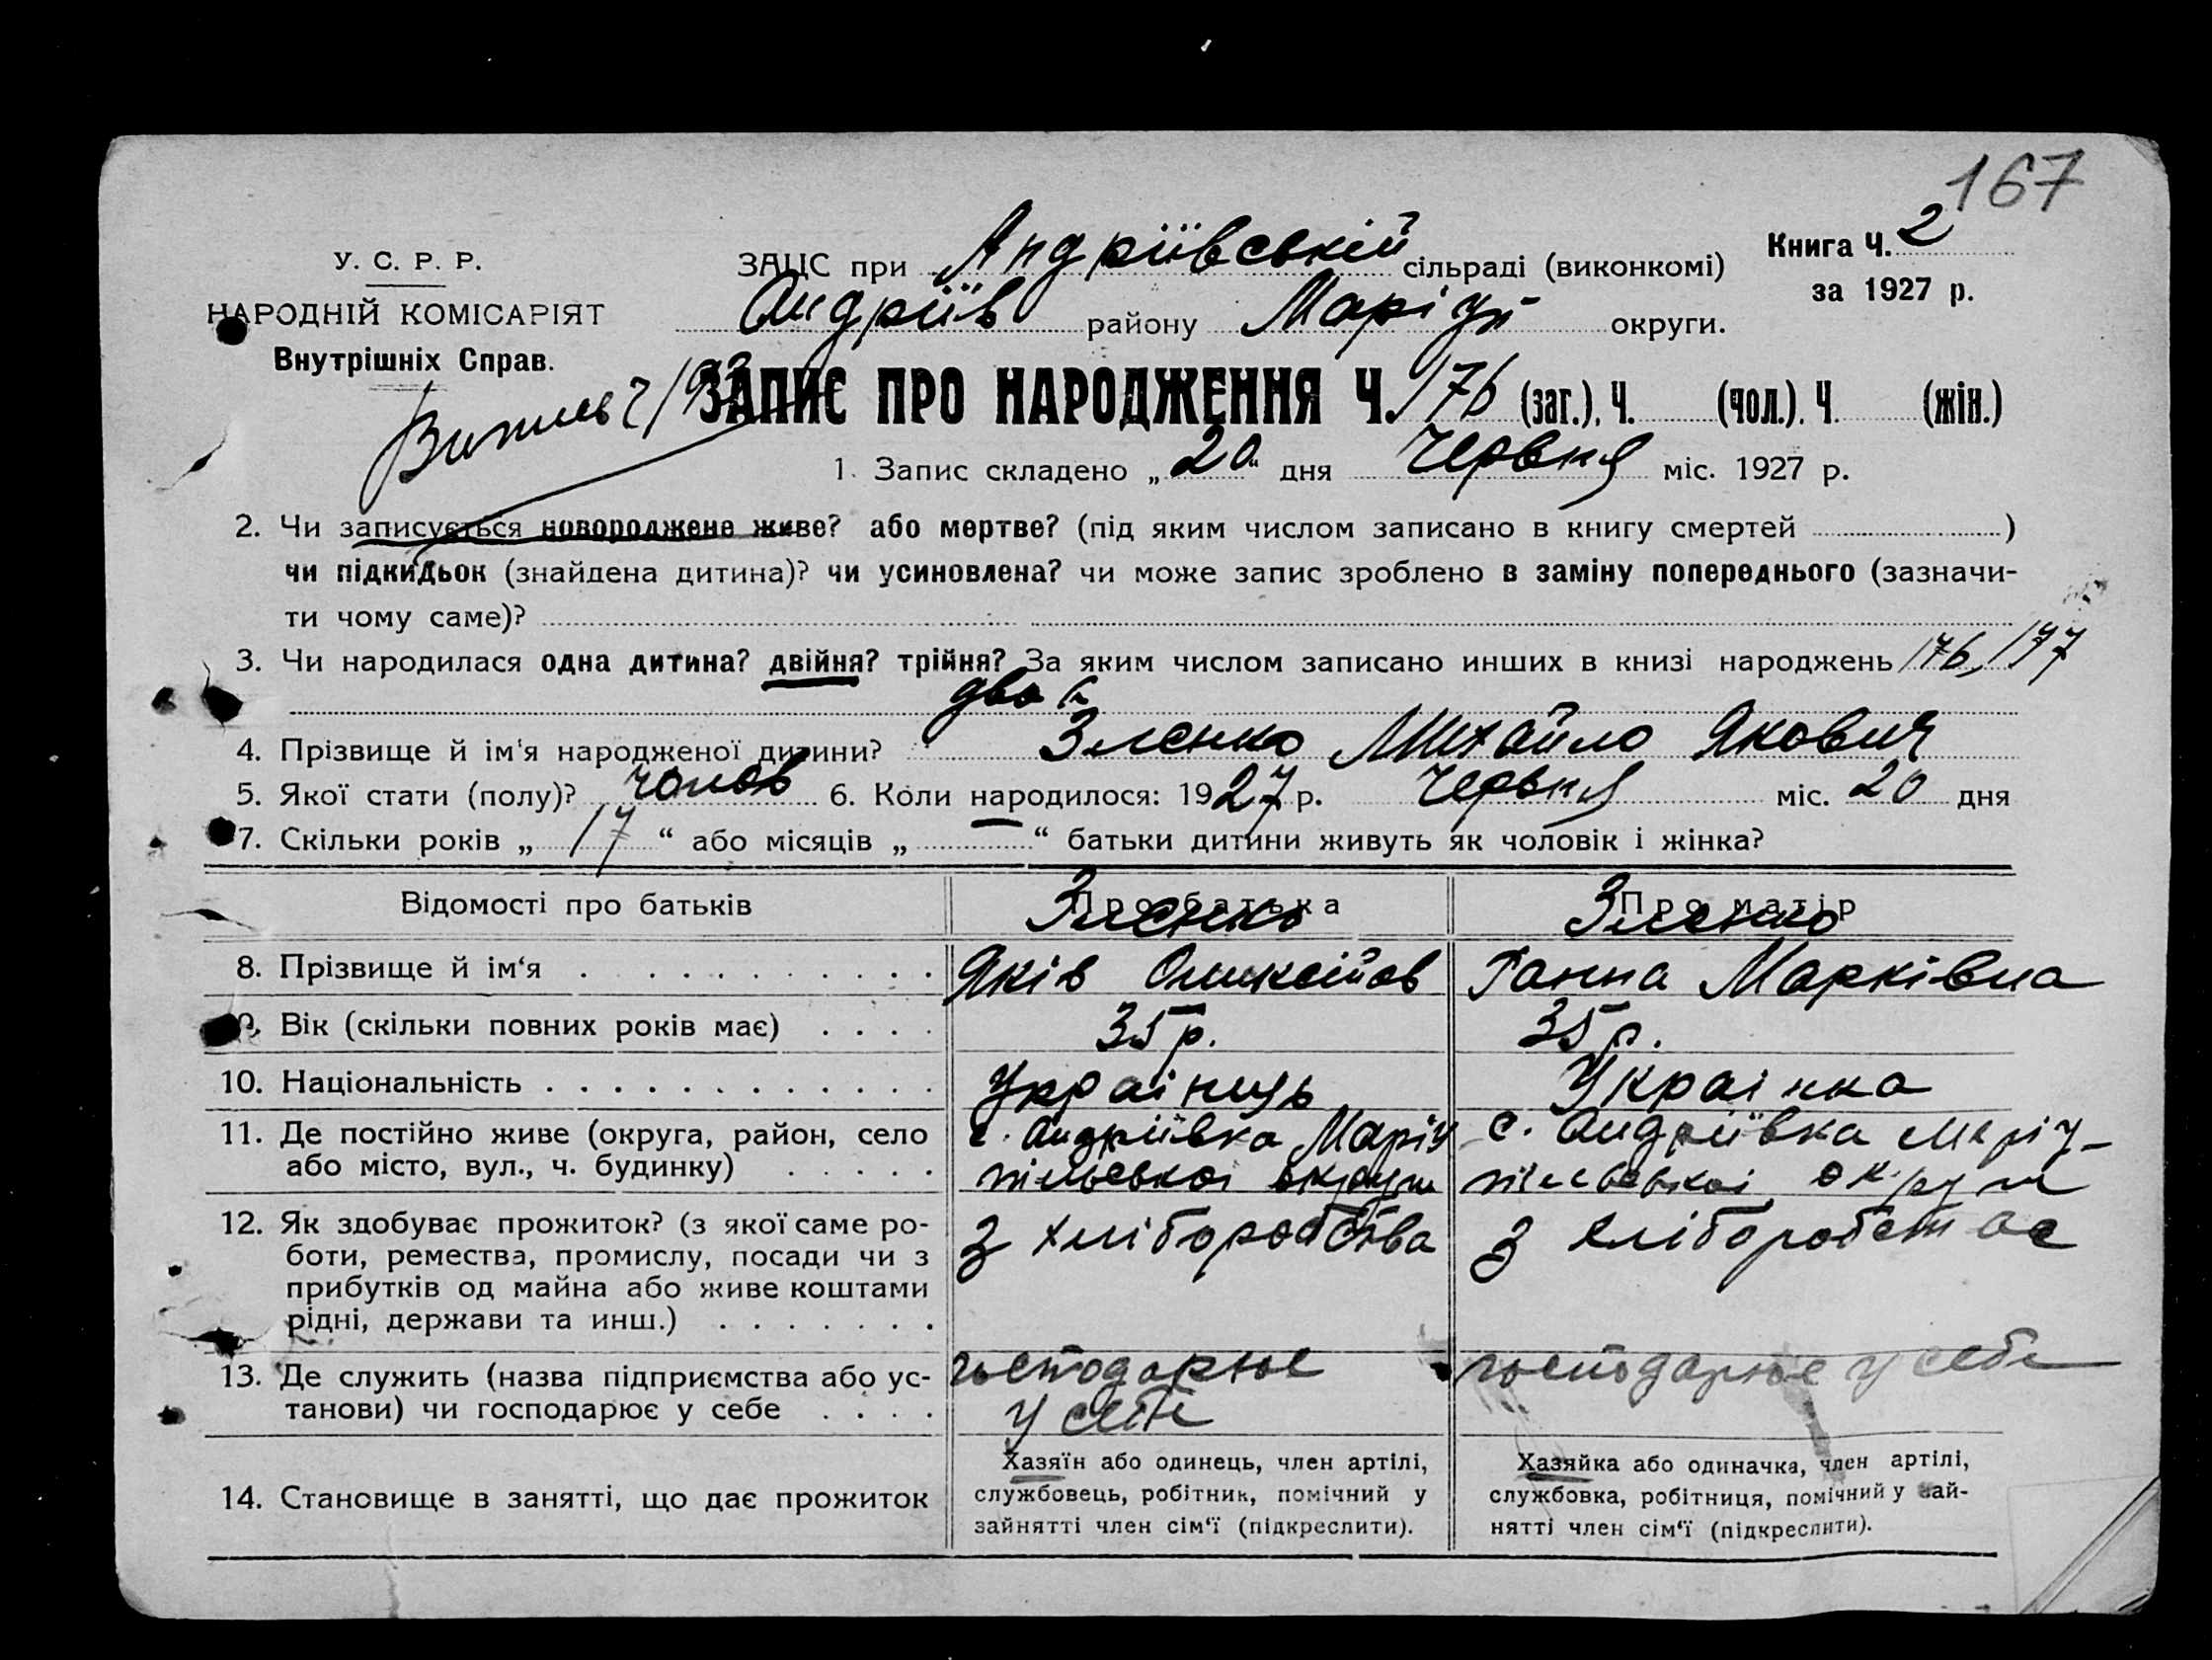 167
У. С. Р. Р.
НАРОДНІЙ КОМІСАРІЯТ
Внутрішніх Справ.
ЗАЦС при Андріївській сільраді (виконкомі)
Андріїв району Маріуп округи.
Книга Ч. 2
за 1927 р.
ЗАПИС ПРО НАРОДЖЕННЯ Ч. 176 (заг.), Ч. (чол.), Ч. (жін.)
1. Запис складено „20“ дня Червня міс. 1927 р.
2. Чи записується новороджене живе? або мертве? (під яким числом записано в книгу смертей )
чи підкидьок (знайдена дитина)? чи усиновлена? чи може запис зроблено в заміну попереднього (зазначи-
ти чому саме)?
3. Чи народилася одна дитина? двійня? трійня? За яким числом записано инших в книзі народжень 176, 177
4. Прізвище й ім'я народженої дитини? Зленко Михайло Якович
5. Якої стати (полу)? чолов 6. Коли народилося: 1927 р. Червня міс. 20 дня
7. Скільки років „ 17 “ або місяців „ “ батьки дитини живуть як чоловік і жінка?
Відомості про батьків
Про батька
Зленко
Про матір
Зленко
8. Прізвище й ім‘я
Яків
Ганна Марківна
9. Вік (скільки повних років має)
35 р.
35 р.
10. Національність
Українць
Українка
11. Де постійно живе (округа, район, село
або місто, вул., ч. будинку)
с. Андріївка Маріу
пільськоі округи
с. Андріївка Маріу-
пільськоі округи
12. Як здобуває прожиток? (з якої саме ро-
боти, ремества, промислу, посади чи з
прибутків од майна або живе коштами
рідні, держави та инш.)
З хліборобства
З хліборобства
13. Де служить (назва підприємства або ус-
танови) чи господарює у себе
господарює
у себе
господарює у себе
14. Становище в занятті, що дає прожиток
Хазяїн або одинець, член артілі,
службовець, робітник, помічний у
зайнятті член сім‘ї (підкреслити).
Хазяйка або одиначка, член артілі,
службовка, робітниця, помічний у зай-
нятті член сім‘ї (підкреслити).